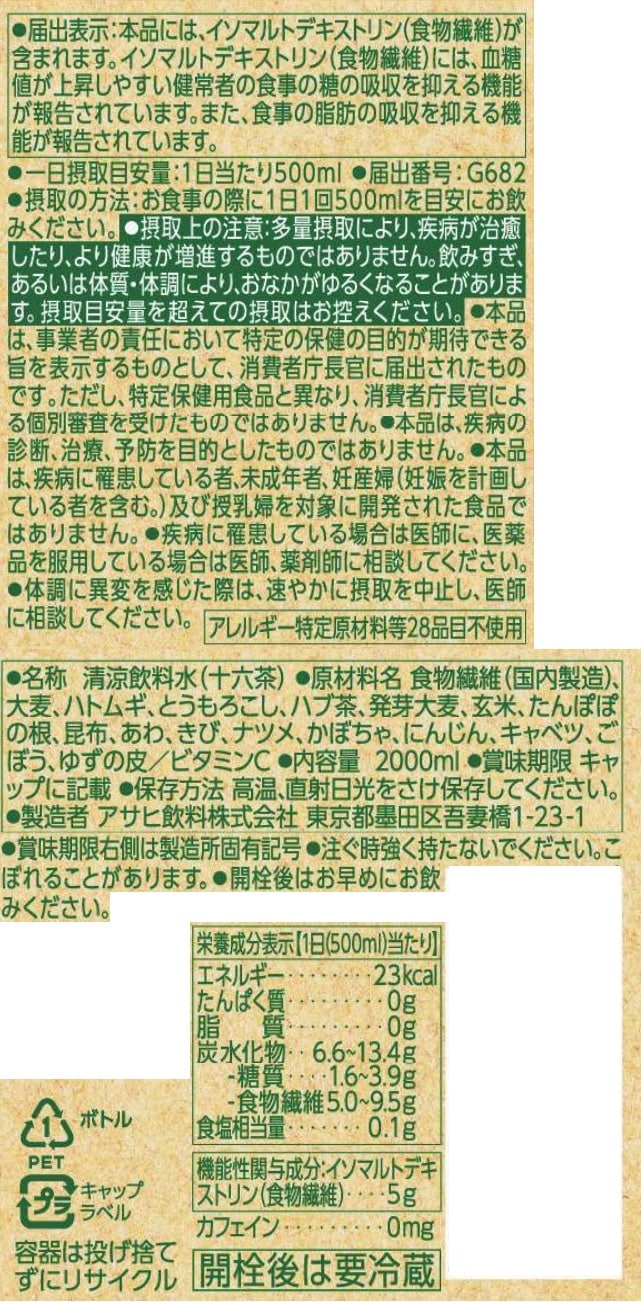 ●届出表示:本品には、イソマルトデキストリン(食物繊維)が
含まれます。イソマルトデキストリン(食物繊維)には、血糖
値が上昇しやすい健常者の食事の糖の吸収を抑える機能
が報告されています。また、食事の脂肪の吸収を抑える機
能が報告されています。
●一日摂取目安量:1日当たり500ml ●届出番号:G682
●摂取の方法:お食事の際に1日1回500mlを目安にお飲
みください。●摂取上の注意:多量摂取により、疾病が治癒
したり、より健康が増進するものではありません。飲みすぎ、
あるいは体質・体調により、おなかがゆるくなることがありま
す。摂取目安量を超えての摂取はお控えください。●本品
は、事業者の責任において特定の保健の目的が期待できる
旨を表示するものとして、消費者庁長官に届出されたもの
です。ただし、特定保健用食品と異なり、消費者庁長官によ
る個別審査を受けたものではありません。●本品は、疾病の
診断、治療、予防を目的としたものではありません。●本品
は、疾病に罹患している者、未成年者、妊産婦(妊娠を計画し
ている者を含む。)及び授乳婦を対象に開発された食品で
はありません。●疾病に罹患している場合は医師に、医薬
品を服用している場合は医師、薬剤師に相談してください。
●体調に異変を感じた際は、速やかに摂取を中止し、医師
に相談してください。 アレルギー特定原材料等28品目不使用
●名称 清涼飲料水(十六茶) ●原材料名 食物繊維(国内製造)、
大麦、ハトムギ、とうもろこし、ハブ茶、発芽大麦、玄米、たんぽぽ
の根、昆布、あわ、きび、ナツメ、かぼちゃ、にんじん、キャベツ、ご
ぼう、ゆずの皮/ビタミンC ●内容量 2000ml ●賞味期限 キャ
ップに記載 ●保存方法 高温、直射日光をさけ保存してください。
●製造者 アサヒ飲料株式会社 東京都墨田区吾妻橋1-23-1
●賞味期限右側は製造所固有記号 ●注ぐ時強く持たないでください。こ
ぼれることがあります。●開栓後はお早めにお飲
みください。
栄養成分表示【1日(500ml)当たり】
エネルギー········23kcal
たんぱく質········0g
脂 質········0g
炭水化物··6.6~13.4g
-糖質····1.6~3.9g
-食物繊維5.0~9.5g
食塩相当量·······0.1g
機能性関与成分:イソマルトデキ
ストリン(食物繊維)····5g
カフェイン·········0mg
開栓後は要冷蔵
1
PET
ボトル
プラ
キャップ
ラベル
容器は投げ捨て
ずにリサイクル